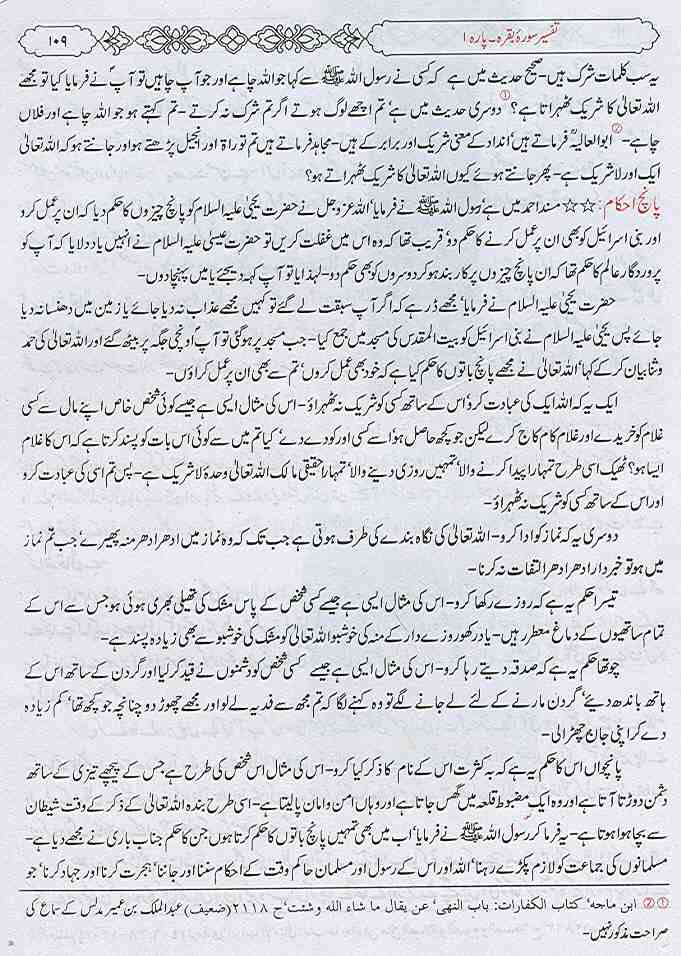 تفسیر سورۂ بقرہ۔ پارہ ۱
۱۰۹
یہ سب کلمات شرک ہیں۔ صحیح حدیث میں ہے کہ کسی نے رسول اللہ ﷺ سے کہا جو اللہ چاہے اور جو آپ چاہیں تو آپؐ نے فرمایا کیا تو مجھے
اللہ تعالیٰ کا شریک ٹھہراتا ہے؟① دوسری حدیث میں ہے' تم اچھے لوگ ہوتے اگر تم شرک نہ کرتے۔ تم کہتے ہو جو اللہ چاہے اور فلاں
چاہے۔② ابوالعالیہؒ فرماتے ہیں' انداد کے معنی شریک اور برابر کے ہیں۔ مجاہد فرماتے ہیں تم توراۃ اور انجیل پڑھتے ہو اور جانتے ہو کہ اللہ تعالیٰ
ایک اور لا شریک ہے۔ پھر جانتے ہوئے کیوں اللہ تعالیٰ کا شریک ٹھہراتے ہو؟
پانچ احکام: ☆☆ مسند احمد میں ہے' رسول اللہ ﷺ نے فرمایا' اللہ عزوجل نے حضرت یحییٰ علیہ السلام کو پانچ چیزوں کا حکم دیا کہ ان پر عمل کرو
اور بنی اسرائیل کو بھی ان پر عمل کرنے کا حکم دو' قریب تھا کہ وہ اس میں غفلت کریں تو حضرت عیسیٰ علیہ السلام نے انہیں یاد دلایا کہ آپ کو
پروردگار عالم کا حکم تھا کہ ان پانچ چیزوں پر کاربند ہو کر دوسروں کو بھی حکم دو۔ لہذا یا تو آپ کہہ دیجئے یا میں پہنچا دوں۔
حضرت یحییٰ علیہ السلام نے فرمایا' مجھے ڈر ہے کہ اگر آپ سبقت لے گئے تو کہیں مجھے عذاب نہ دیا جائے یا زمین میں دھنسا نہ دیا
جائے پس یحییٰ علیہ السلام نے بنی اسرائیل کو بیت المقدس کی مسجد میں جمع کیا۔ جب مسجد پر ہو گئی تو آپؑ اونچی جگہ پر بیٹھ گئے اور اللہ تعالیٰ کی حمد
و ثنا بیان کر کے کہا' اللہ تعالیٰ نے مجھے پانچ باتوں کا حکم کیا ہے کہ خود بھی عمل کروں' تم سے بھی ان پر عمل کراؤں۔
ایک یہ کہ اللہ ایک کی عبادت کرو' اس کے ساتھ کسی کو شریک نہ ٹھہراؤ۔ اس کی مثال ایسی ہے جیسے کوئی شخص خاص اپنے مال سے کسی
غلام کو خریدے اور غلام کام کاج کرے لیکن جو کچھ حاصل ہو' اسے کسی اور کو دے دے' کیا تم میں سے کوئی اس بات کو پسند کرتا ہے کہ اس کا غلام
ایسا ہو؟ ٹھیک اسی طرح تمہارا پیدا کرنے والا' تمہیں روزی دینے والا' تمہارا حقیقی مالک اللہ تعالیٰ وحدہٗ لا شریک ہے۔ پس تم اسی کی عبادت کرو
اور اس کے ساتھ کسی کو شریک نہ ٹھہراؤ۔
دوسری یہ کہ نماز کو ادا کرو۔ اللہ تعالیٰ کی نگاہ بندے کی طرف ہوتی ہے جب تک کہ وہ نماز میں ادھر ادھر منہ پھیرے' جب تم نماز
میں ہو تو خبردار ادھر ادھر التفات نہ کرنا۔
تیسرا حکم یہ ہے کہ روزے رکھا کرو۔ اس کی مثال ایسی ہے جیسے کسی شخص کے پاس مشک کی تھیلی بھری ہوئی ہو جس سے اس کے
تمام ساتھیوں کے دماغ معطر رہیں۔ یاد رکھو روزے دار کے منہ کی خوشبو اللہ تعالیٰ کو مشک کی خوشبو سے بھی زیادہ پسند ہے۔
چوتھا حکم یہ ہے کہ صدقہ دیتے رہا کرو۔ اس کی مثال ایسی ہے جیسے کسی شخص کو دشمنوں نے قید کر لیا اور گردن کے ساتھ اس کے
ہاتھ باندھ دیئے' گردن مارنے کے لئے لے جانے لگے تو وہ کہنے لگا کہ تم مجھ سے فدیہ لے لو اور مجھے چھوڑ دو چنانچہ جو کچھ تھا' کم زیادہ
دے کر اپنی جان چھڑالی۔
پانچواں اس کا حکم یہ ہے کہ بہ کثرت اس کے نام کا ذکر کیا کرو۔ اس کی مثال اس شخص کی طرح ہے جس کے پیچھے تیزی کے ساتھ
دشمن دوڑتا آتا ہے اور وہ ایک مضبوط قلعہ میں گھس جاتا ہے اور وہاں امن و امان پا لیتا ہے۔ اسی طرح بندہ اللہ تعالیٰ کے ذکر کے وقت شیطان
سے بچا ہوا ہوتا ہے۔ یہ فرما کر رسول اللہ ﷺ نے فرمایا' اب میں بھی تمہیں پانچ باتوں کا حکم کرتا ہوں جن کا حکم جناب باری نے مجھے دیا ہے۔
مسلمانوں کی جماعت کو لازم پکڑے رہنا' اللہ اور اس کے رسول اور مسلمان حاکم وقت کے احکام سننا اور جاننا' ہجرت کرنا اور جہاد کرنا' جو
①② ابن ماجہ' کتاب الکفارات: باب النھی' عن یقال ما شاء اللہ وشئت' ح ۲۱۱۸ (ضعیف) عبدالملک بن عمیر مدلس کے سماع کی
صراحت مذکور نہیں۔